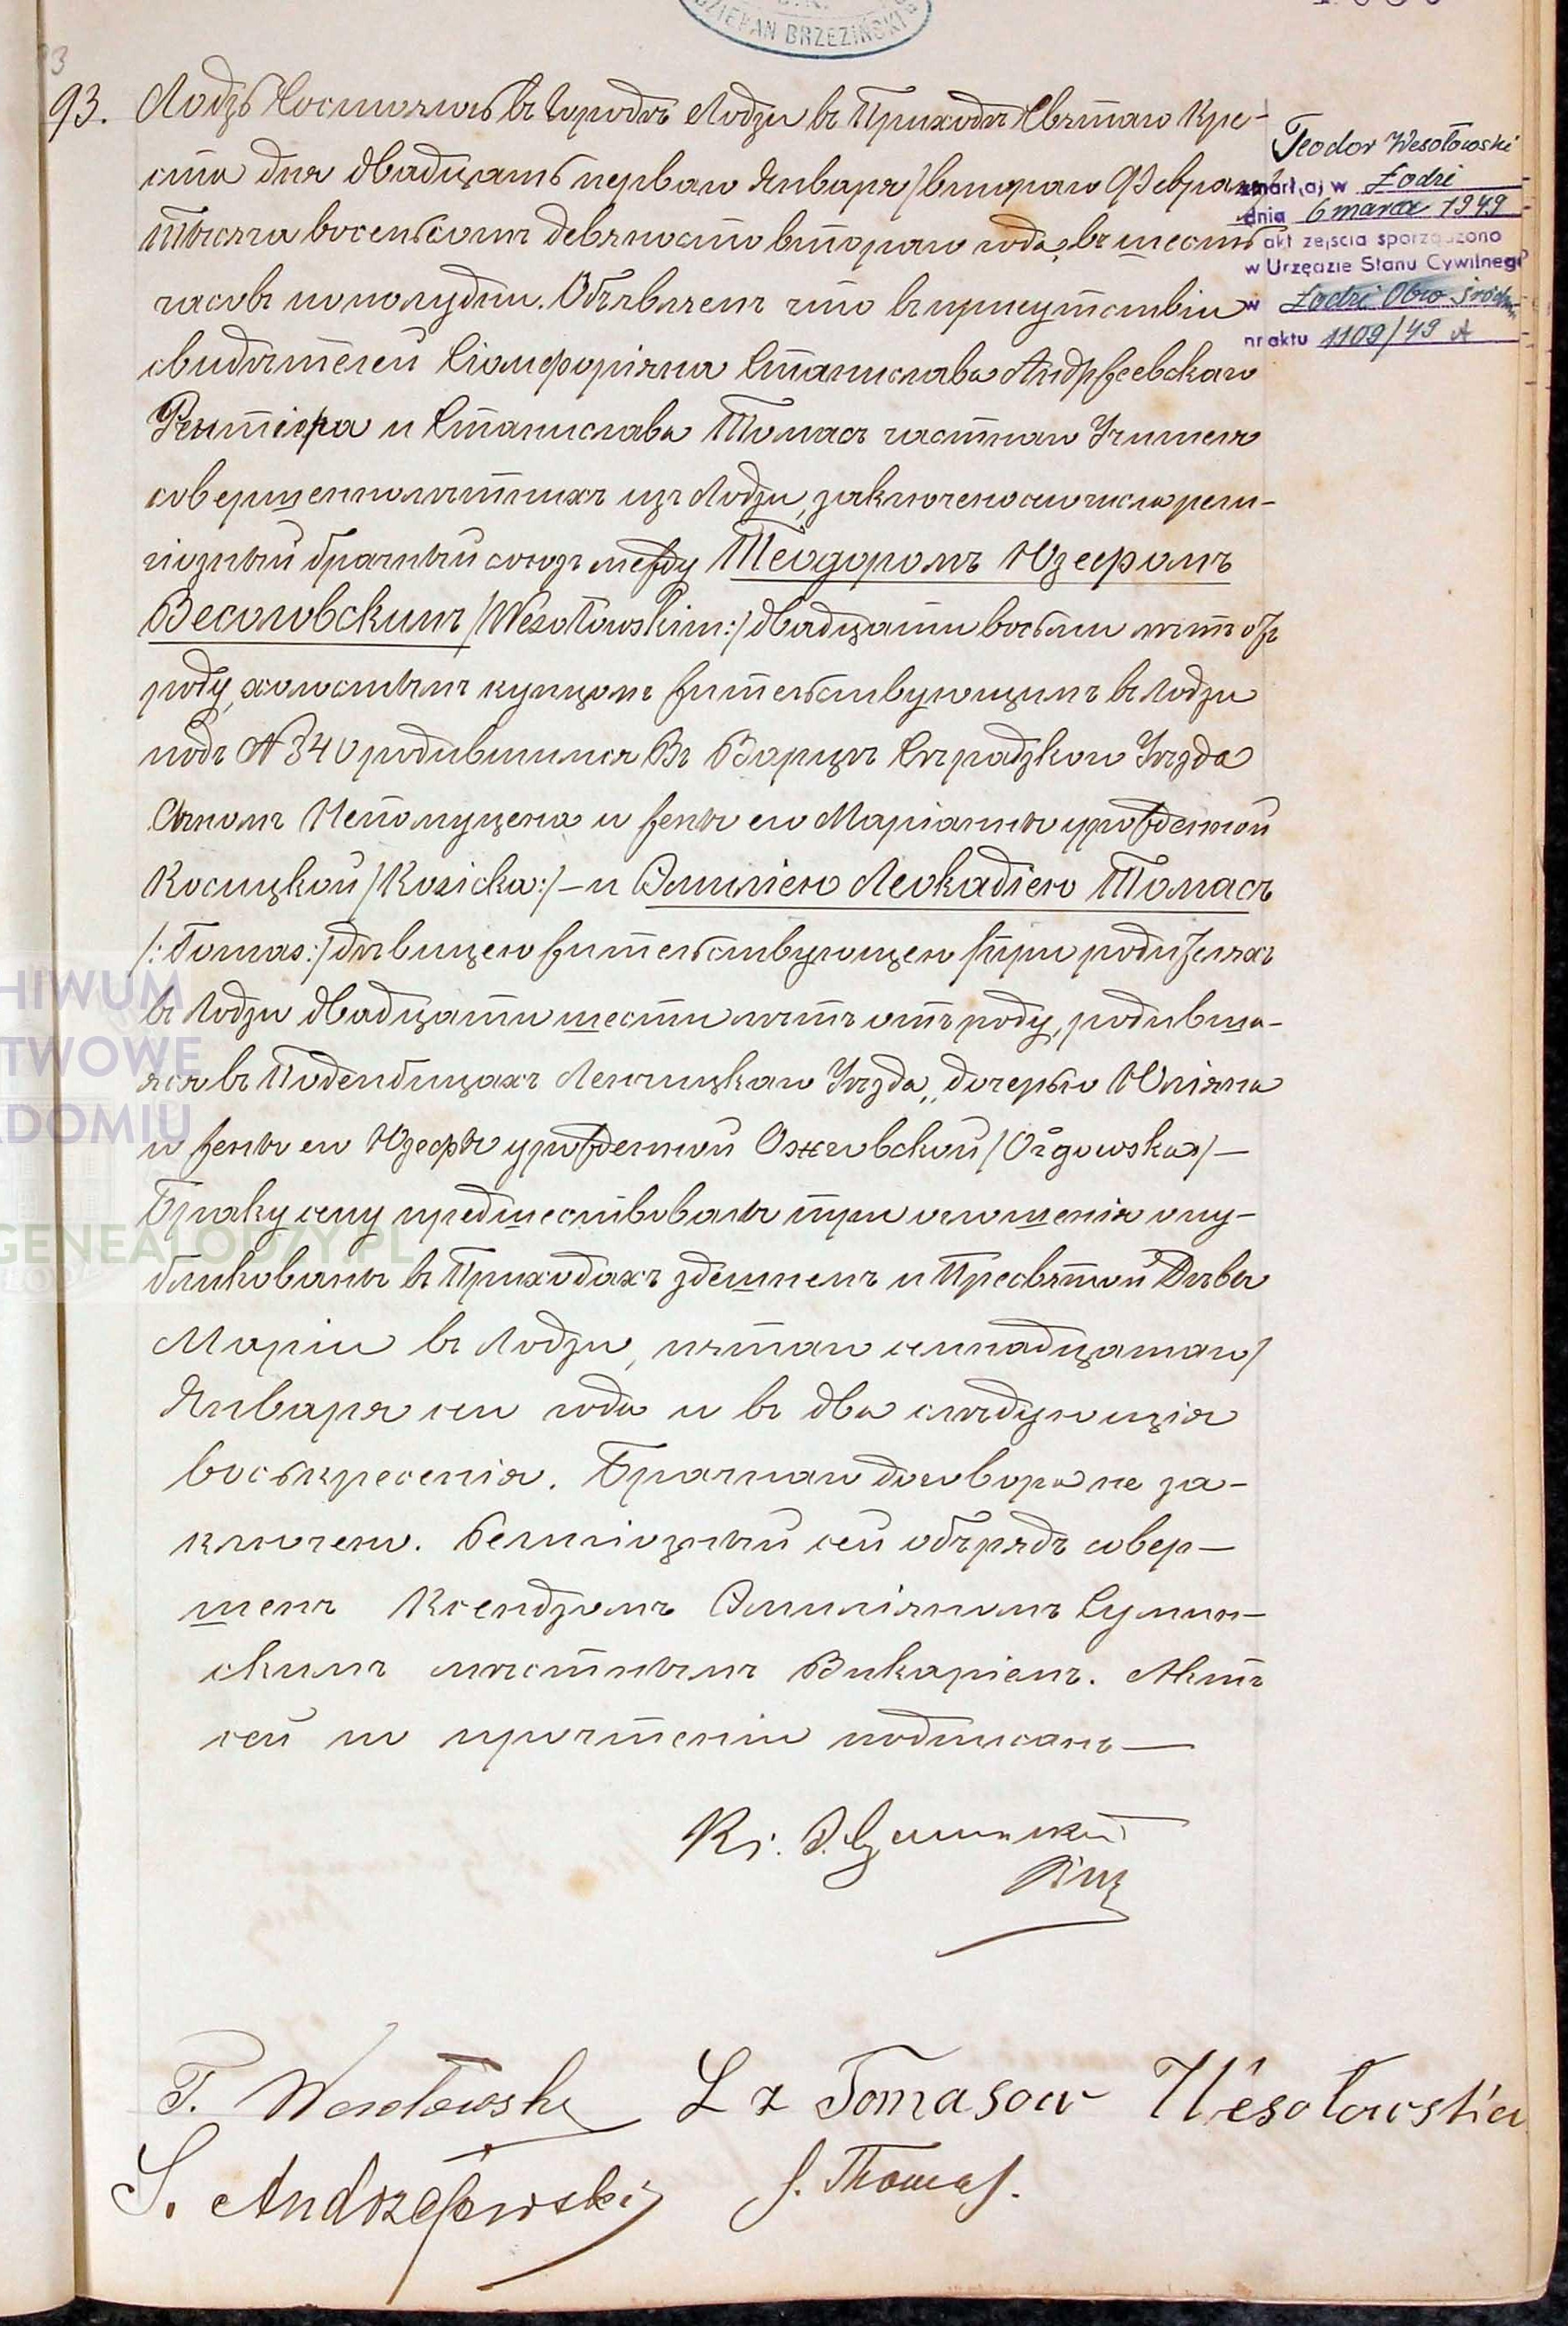 DZIEKAN BRZEZIŃSKI
93.
Лодзь Состоялось въ Городѣ Лодзи въ Приходѣ Святаго Кре-
ста дня двадцать перваго Января /втораго Февраля/
Тысяча восемьсотъ девяносто втораго года, въ шесть
часовъ пополудни. Объявляемъ что въ присутствіи
свидѣтелей Станислава Андржеевскаго
Рентіера и Станислава Томасъ частнаго Учителя
совершеннолѣтнихъ изъ Лодзи, заключенъ сего числа рели-
гіозный брачный союзъ между Теодоромъ Юзефомъ
Весоловскимъ /Wesołowskim:/ двадцати восьми лѣтъ отъ
роду, холостымъ купцомъ жительствующимъ въ Лодзи
подъ N 340 родившимся въ Варцѣ Сѣрадзкаго Уѣзда
Сыномъ Непомуцена и жены его Маріанны урожденной
Косицкой /Kosicka:/ – и Эмиліею Леокадіею Томасъ
/:Tomas:/ дѣвицею жительствующею при родителяхъ
въ Лодзи двадцати шести лѣтъ отъ роду, родивша-
яся въ Поденбицахъ Ленчицкаго Уѣзда, дочерью Юліяна
и жены его Юзефы урожденной Ожговской /Ożgowska/ –
Браку сему предшествовали три оглашенія опу-
бликованы въ Приходахъ здешнемъ и Пресвятой Дѣвы
Маріи въ Лодзи, семнадцатаго/
Января сего года и въ два слѣдующія
воскресенія. Брачнаго договора не за-
ключено. Религіозный сей обрядъ совер-
шенъ Ксендзомъ Эмиліяномъ
скимъ мѣстнымъ Викаріемъ. Актъ
сей по прочтеніи подписанъ –
Teodor Wesołowski
zmarł(a) w Łodzi
dnia 6 marca 1949
akt zejścia sporządzono
w Urzędzie Stanu Cywilnego
w Łodzi Obw. Śródm.
nr aktu 1109/49 A
T. Wesołowski L z Tomasow Wesołowska
S. Andrzejewski S. Thomas.
HIWUM
TWOWE
ADOMIU
GENEALODZY.PL